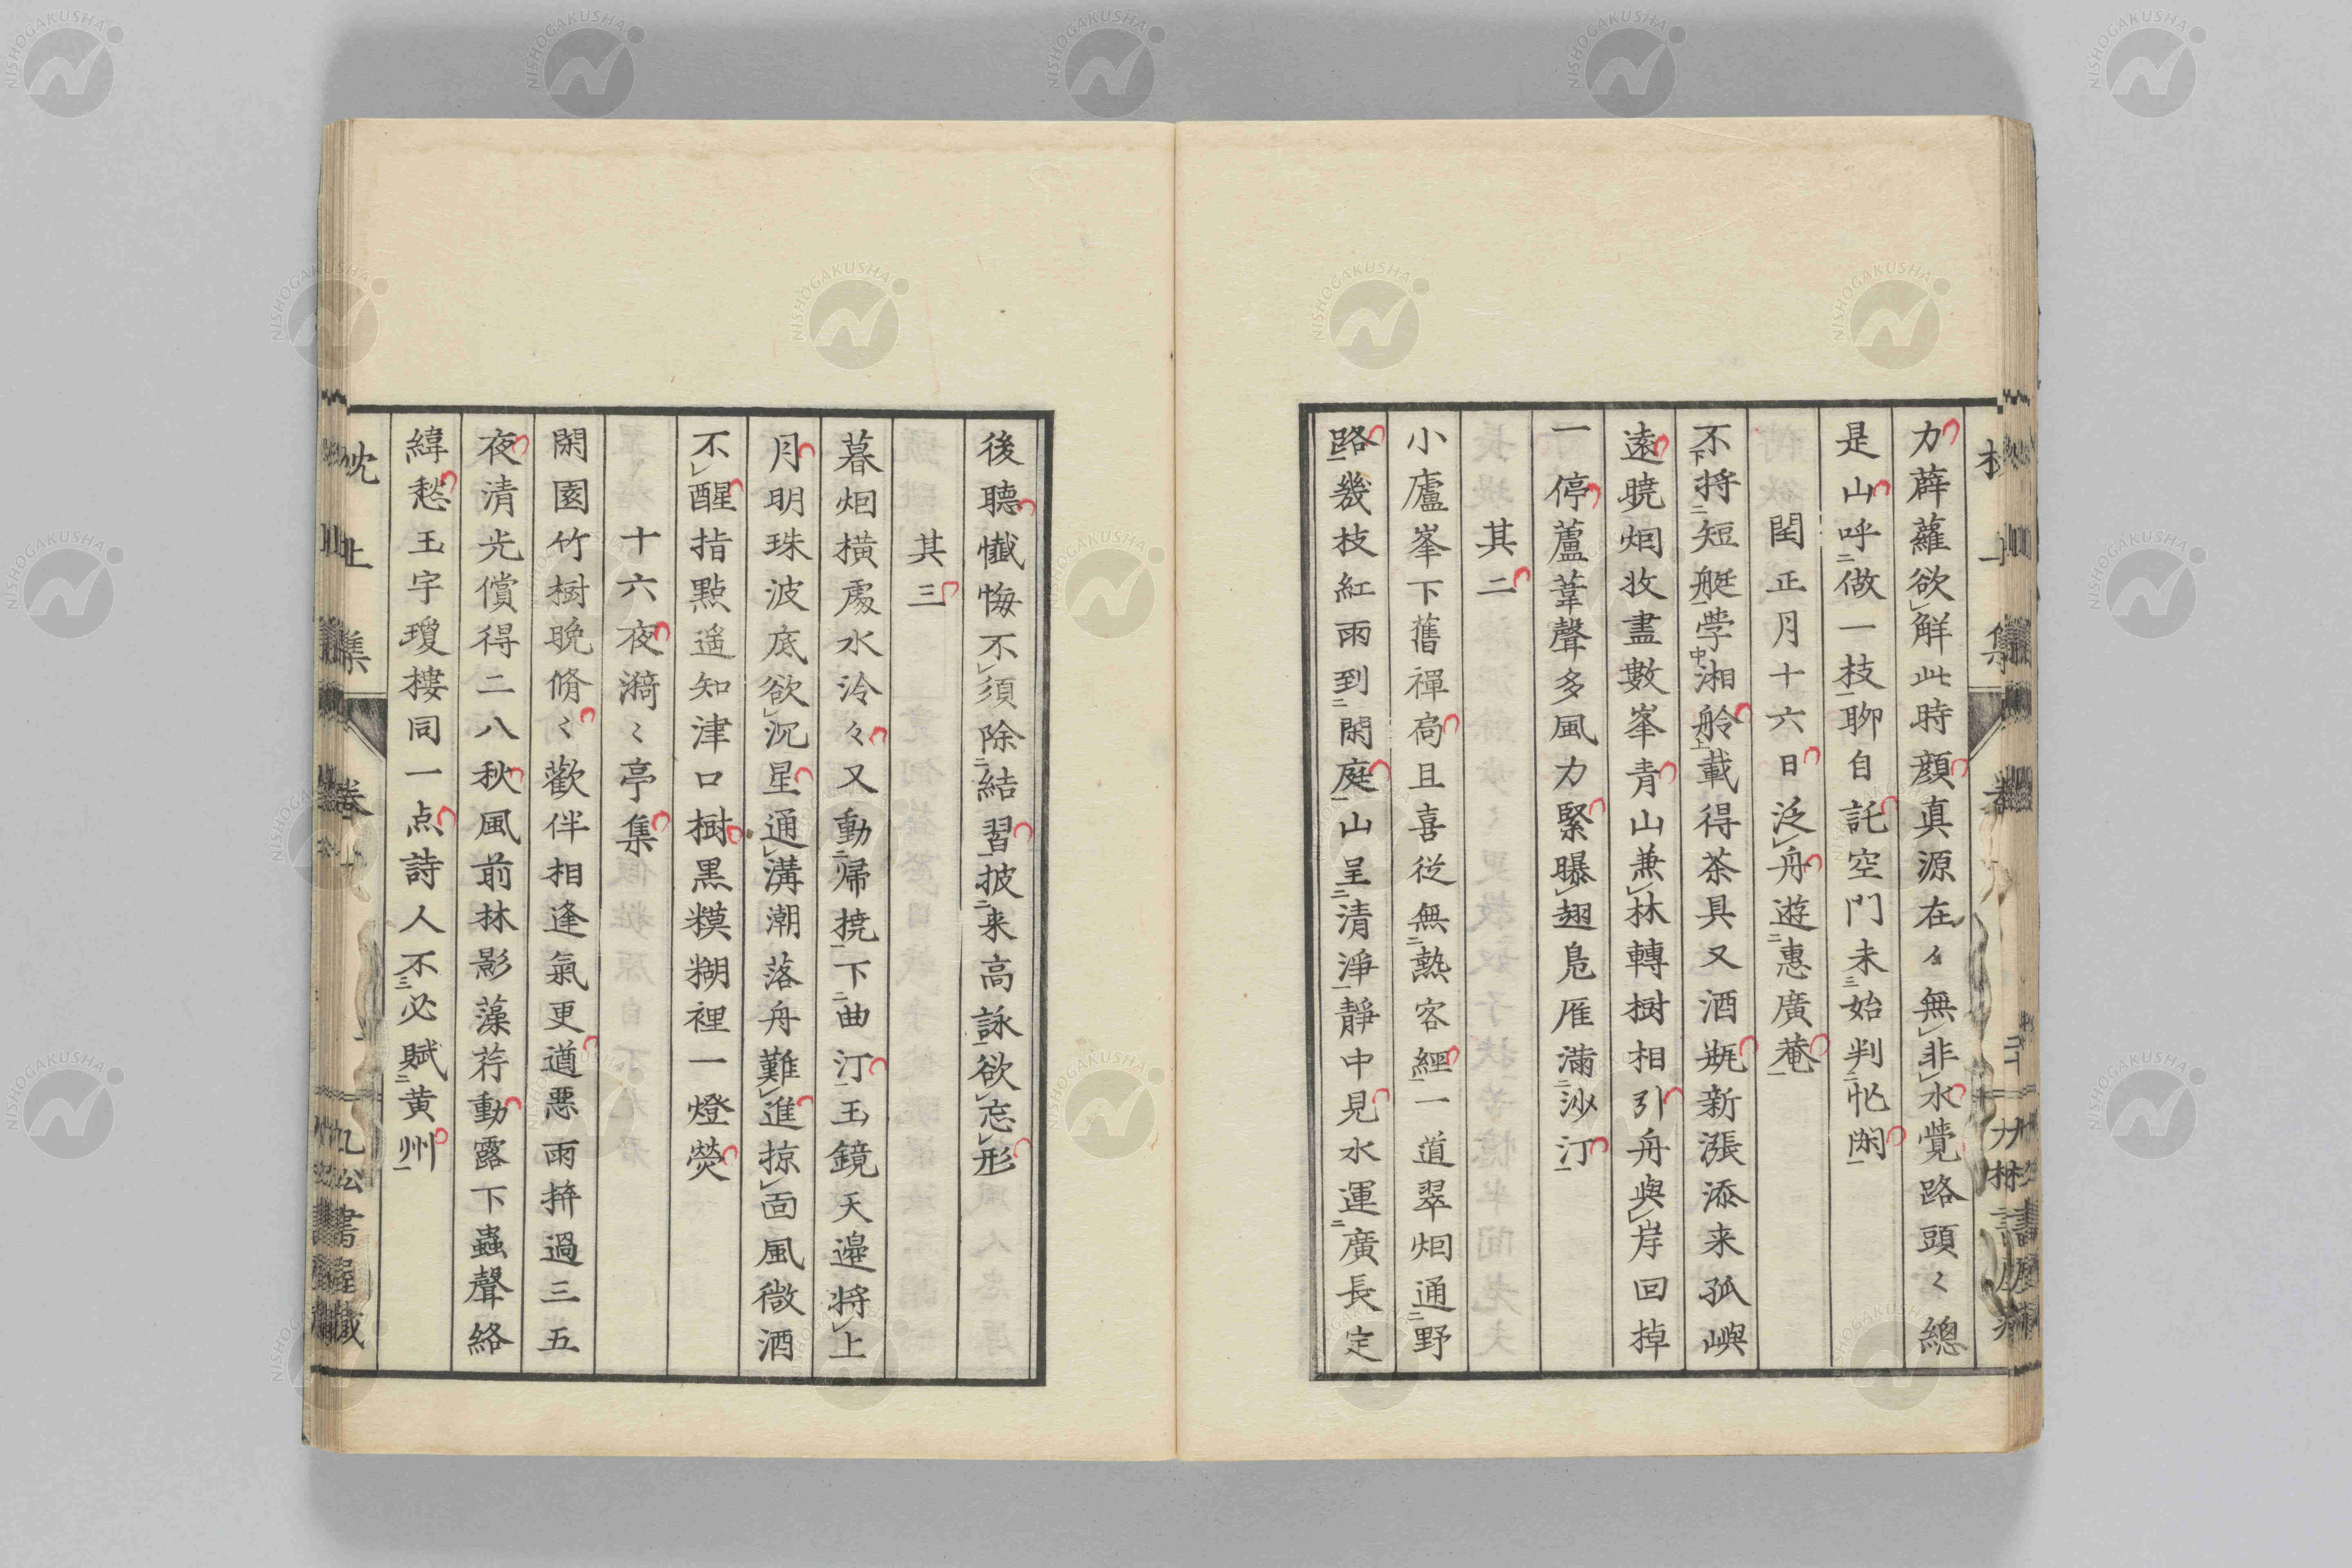 力薜蘿欲觧此時顔真源在々無非水覺路頭〻總
是山呼做一技聊自託空門未始判忙閑
閏正月十六日泛舟遊惠廣菴
不將短艇学湘舲載得茶具又酒瓶新漲添来孤嶼
遠曉烟收盡數峯青山兼林轉樹相引舟與岸回掉
一停蘆葦聲多風力緊曝翅鳬雁滿沙汀
其二
小廬峯下舊禪扃且喜従無熱客經一道翠烟通野
路幾枝紅雨到閑庭山呈清淨靜中見水運廣長定
後聽懺悔不須除結習披来高詠欲忘形
其三
暮烟横處水泠々又動帰撓下曲汀玉鏡天邉將上
月明珠波底欲沉星通溝潮落舟難進掠面風微酒
不醒指點遥知津口樹黒糢糊裡一燈熒
十六夜漪〻亭集
閑園竹樹晩脩〻歡伴相逢氣更遒惡雨拚過三五
夜清光償得二八秋風前林影藻荇動露下蟲聲絡
緯愁玉宇瓊樓同一点詩人不必賦黄州